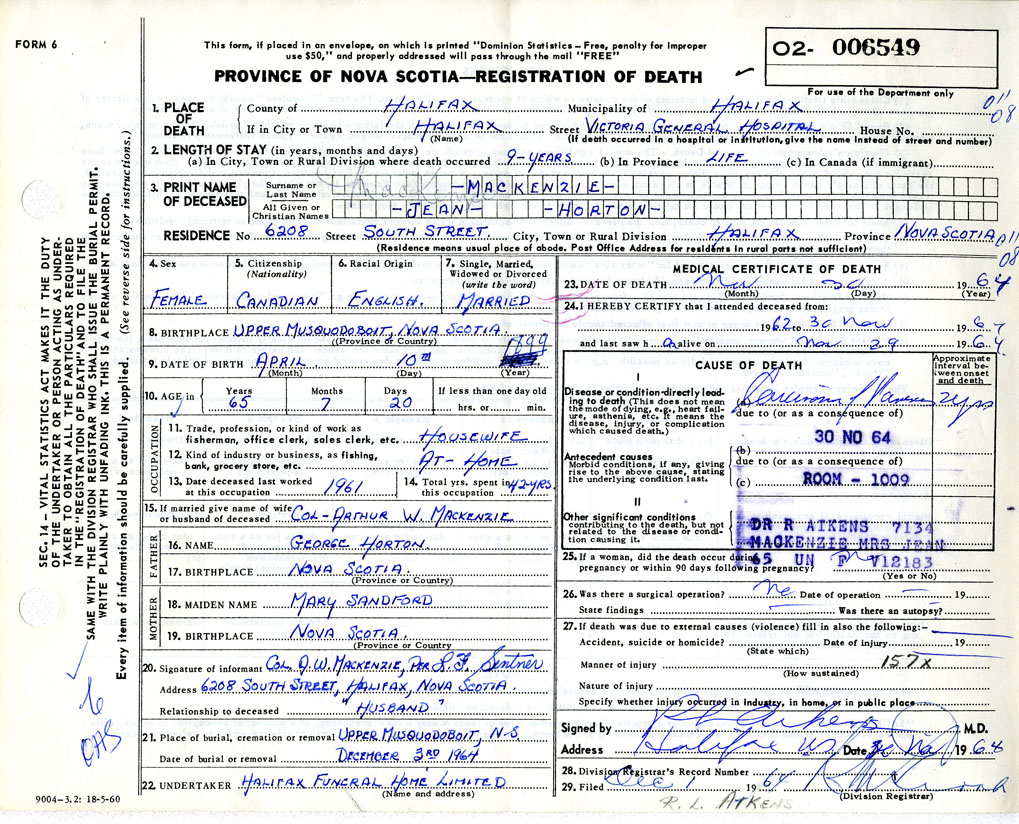 FORM 6
This form, if placed in an envelope, on which is printed "Dominion Statistics – Free, penalty for improper
use $50," and properly addressed will pass through the mail "FREE"
O2- 006549
PROVINCE OF NOVA SCOTIA—REGISTRATION OF DEATH
For use of the Department only
011
08
1. PLACE OF DEATH
County of HALIFAX Municipality of HALIFAX
If in City or Town HALIFAX Street VICTORIA GENERAL HOSPITAL House No.
(Name) (If death occurred in a hospital or institution, give the name instead of street and number)
2. LENGTH OF STAY (in years, months and days)
(a) In City, Town or Rural Division where death occurred 9-YEARS (b) In Province LIFE (c) In Canada (if immigrant)
3. PRINT NAME OF DECEASED
Surname or Last Name -MACKENZIE-
All Given or Christian Names -JEAN- -HORTON-
RESIDENCE No 6208 Street SOUTH STREET. City, Town or Rural Division HALIFAX Province NOVA SCOTIA
011
08
(Residence means usual place of abode. Post Office Address for residents in rural parts not sufficient)
4. Sex
FEMALE
5. Citizenship (Nationality)
CANADIAN
6. Racial Origin
ENGLISH.
7. Single, Married, Widowed or Divorced (write the word)
MARRIED
8. BIRTHPLACE UPPER MUSQUODOBOIT, NOVA SCOTIA
(Province or Country)
9. DATE OF BIRTH APRIL 10th 1899
(Month) (Day) (Year)
10. AGE in
Years Months Days If less than one day old
65 7 20 hrs. or min.
OCCUPATION
11. Trade, profession, or kind of work as
fisherman, office clerk, sales clerk, etc. HOUSEWIFE
12. Kind of industry or business, as fishing,
bank, grocery store, etc. AT-HOME
13. Date deceased last worked
at this occupation 1961
14. Total yrs. spent in
this occupation 42-YRS.
15. If married give name of wife
or husband of deceased COL-ARTHUR W. MACKENZIE
FATHER
16. NAME GEORGE HORTON.
17. BIRTHPLACE NOVA SCOTIA
(Province or Country)
MOTHER
18. MAIDEN NAME MARY SANDFORD
19. BIRTHPLACE NOVA SCOTIA.
(Province or Country)
20. Signature of informant COL. A.W. MACKENZIE, PER
Address 6208 SOUTH STREET, HALIFAX, NOVA SCOTIA.
Relationship to deceased "HUSBAND"
21. Place of burial, cremation or removal UPPER MUSQUODOBOIT, N-S
Date of burial or removal DECEMBER 3RD 1964
22. UNDERTAKER HALIFAX FUNERAL HOME LIMITED
(Name and address)
MEDICAL CERTIFICATE OF DEATH
23. DATE OF DEATH Nov 30 1964
(Month) (Day) (Year)
24. I HEREBY CERTIFY that I attended deceased from:
1962 to 30 Nov 1964
and last saw h alive on Nov 29 1964
CAUSE OF DEATH
Approximate interval between onset and death
I
Disease or condition directly leading to death (This does not mean the mode of dying, e.g., heart failure, asthenia, etc. It means the disease, injury, or complication which caused death.)
(a) 2 yrs
due to (or as a consequence of)
30 NO 64
Antecedent causes
Morbid conditions, if any, giving rise to the above cause, stating the underlying condition last.
(b)
due to (or as a consequence of)
(c) ROOM - 1009
II
Other significant conditions
contributing to the death, but not related to the disease or condition causing it.
DR R ATKENS 7134
MACKENZIE MRS JEAN
65 UN F V12183
25. If a woman, did the death occur during
pregnancy or within 90 days following pregnancy? No
(Yes or No)
26. Was there a surgical operation? No Date of operation 19
State findings Was there an autopsy?
27. If death was due to external causes (violence) fill in also the following:-
Accident, suicide or homicide? Date of injury 19
(State which)
157X
Manner of injury
(How sustained)
Nature of injury
Specify whether injury occurred in industry, in home, or in public place
Signed by M.D.
Address Halifax NS Date 30 Nov 1964
28. Division Registrar's Record Number
29. Filed Dec 1 1964
(Division Registrar)
R. L. ATKENS
9004-3.2: 18-5-60
SEC. 14 – VITAL STATISTICS ACT MAKES IT THE DUTY
OF THE UNDERTAKER OR PERSON ACTING AS UNDER-
TAKER TO OBTAIN ALL THE PARTICULARS REQUIRED
IN THE "REGISTRATION OF DEATH" AND TO FILE THE
SAME WITH THE DIVISION REGISTRAR WHO SHALL ISSUE THE BURIAL PERMIT.
WRITE PLAINLY WITH UNFADING INK. THIS IS A PERMANENT RECORD.
Every item of information should be carefully supplied. (See reverse side for instructions.)